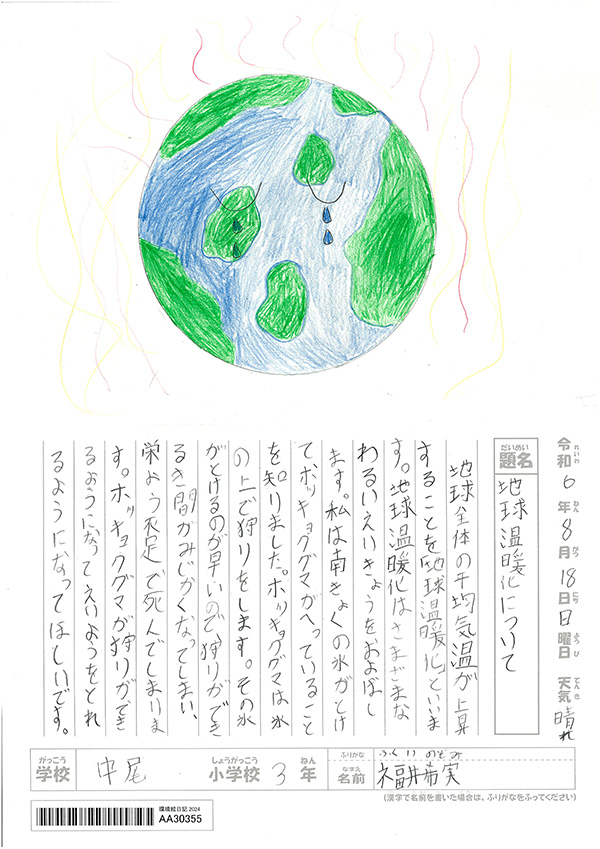 令和6年8月18日日曜日 天気 晴れ
れいわ ねん がつ にち ようび てんき
だいめい
題名
地球温暖化について
地球全体の平均気温が上昇
することを「地球温暖化」といいま
す。地球温暖化はさまざまな
わるいえいきょうをおよぼし
ます。私は南きょくの氷がとけ
てホッキョクグマがへっていること
を知りました。ホッキョクグマは氷
の上で狩りをします。その氷
がとけるのが早いので、狩りができ
るき間がみじかくなってしまい、
栄よう不足で死んでしまいま
す。ホッキョクグマが狩りができ
るようになってえいようをとれ
るようになってほしいです。
がっこう
学校
中尾
しょうがっこう
小学校
3
ねん
年
ふりがな
ふくい のぞみ
なまえ
名前
福井希実
(漢字で名前を書いた場合は、ふりがなをふってください)
環境絵日記2024
AA30355